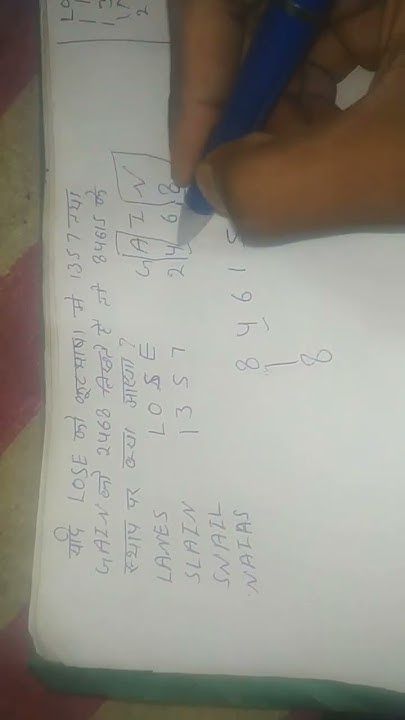 यदि LOSE को कूटभाषा में 1357 तथा
GAIN को 2468 लिखते है तो 84615 के
स्थान पर क्या आएगा ?
LANES
SLAIN
SNAIL
NAIAS
L O S E
1 3 5 7
G A I N
2 4 6 8
8 4 6 1 5
1
8